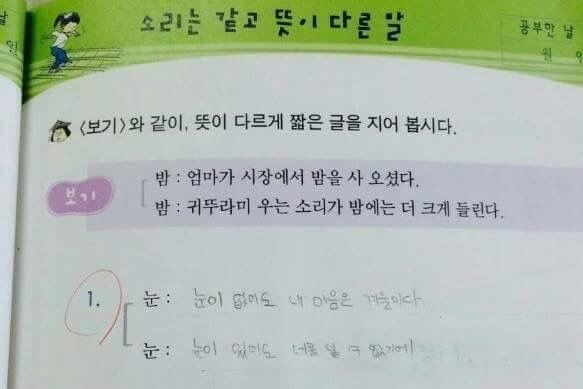 소리는 같고 뜻이 다른 말
공부한 날
날
월
일
<보기>와 같이, 뜻이 다르게 짧은 글을 지어 봅시다.
보기
밤 : 엄마가 시장에서 밤을 사 오셨다.
밤 : 귀뚜라미 우는 소리가 밤에는 더 크게 들린다.
1.
눈 : 눈이 없어도 내 마음은 겨울이다.
눈 : 눈이 있어도 너를 볼 수 없기에